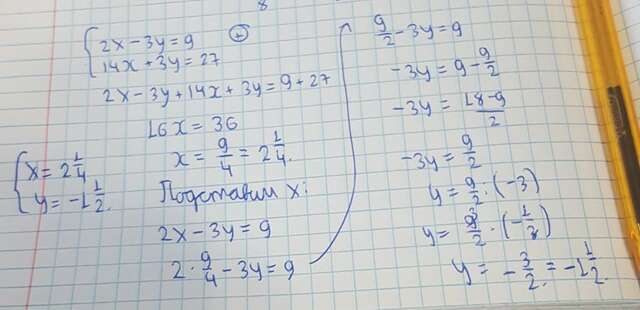 8
{ 2x - 3y = 9 (+)
{ 14x + 3y = 27
2x - 3y + 14x + 3y = 9 + 27
16x = 36
x = 9/4 = 2 1/4.
Подставим x:
2x - 3y = 9
2 · 9/4 - 3y = 9
9/2 - 3y = 9
-3y = 9 - 9/2
-3y = (18-9)/2
-3y = 9/2
y = 9/2 : (-3)
y = 9/2 · (-1/3)
y = -3/2 = -1 1/2.
{ x = 2 1/4
{ y = -1 1/2.